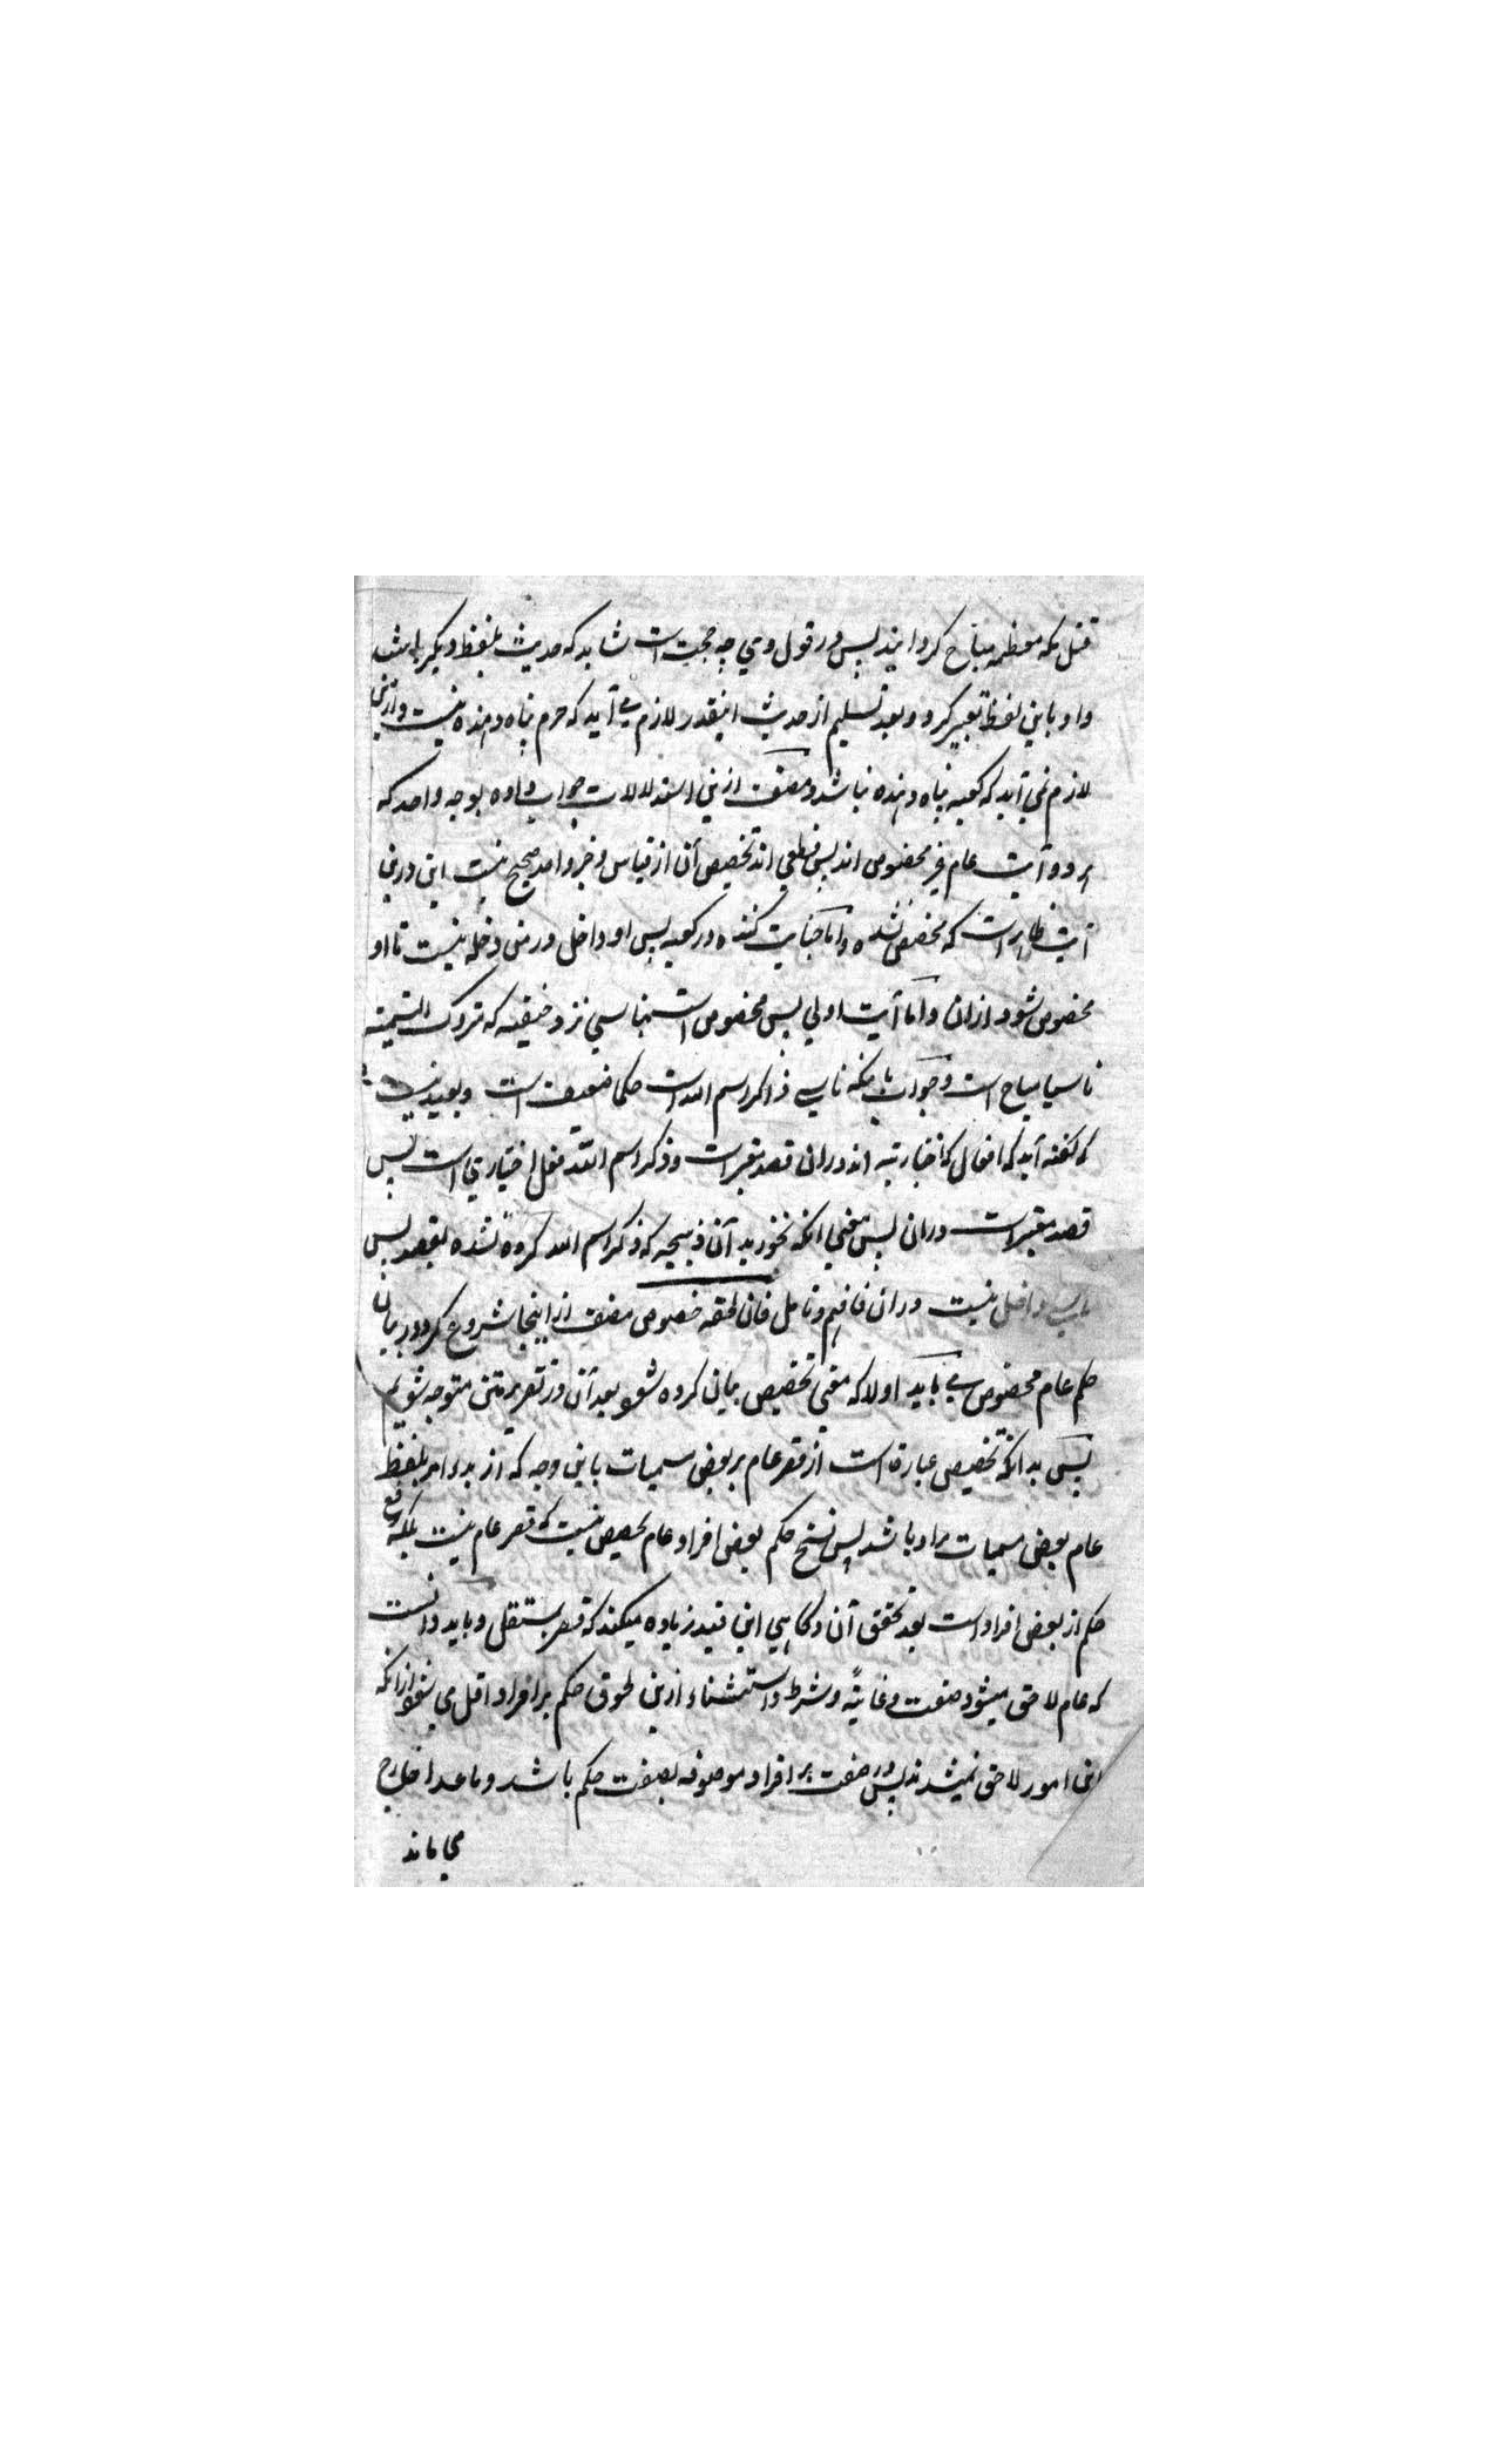 قتل مکه معظمه مباح کردانید پس در قول وی چه حجت است شاید که حدیث بلفظ دیکر باشد
و او باین لفظ تعبیر کرد و بعد تسلیم از حدیث اینقدر لازم می آید که حرم پناه دهنده نیست و ازین
لازم نمی آید که کعبه پناه دهنده نباشد و مصنف ازین استدلالات جواب داده بوجه واحد که
هر دو آیت عام غیر مخصوص اند پس قطعی اند تخصیص آن از قیاس و خبر واحد صحیح نیست این درین
آیت ظاهر است که مخصص نشده و اما جنایت کننده در کعبه پس او داخل در من دخله نیست تا او
مخصوص شود ازان و اما آیت اولی پس مخصوص است بناسی نزد حنیفه که متروک التسمیه
ناسیا مباح است و جواب بانکه ناسی ذاکر اسم الله است حکما ضعیف است و بعید نیست
که کفته آید که افعال که اختاریه اند دران قصد معتبر است و ذکر اسم الله فعل اختیاری است پس
قصد معتبر است دران پس معنی انکه نخورید آن ذبیحه که ذکر اسم الله کرده نشده بقصد پس
ناسی داخل نیست دران فافهم و تامل فان لحقه خصوص مصنف از اینجا شروع کرد در بیان
حکم عام مخصوص می باید اولا که معنی تخصیص بیان کرده شود بعد آن در تقریر متن متوجه شویم
پس بدانکه تخصیص عبارة است از قصر عام بر بعض مسمیات باین وجه که از بدء امر بلفظ
عام بعض مسمیات مراد باشد پس نسخ حکم بعض افراد عام تخصیص نیست که قصر عام نیست بلکه رفع
حکم از بعض افراد است بعد تحقق آن و کاهی این قید زیاده میکند که قصر بمستقل و باید دانست
که عام لاحق میشود صفت و غایة و شرط و استثناء ازین لحوق حکم بر افراد اقل می شود ازانکه
این امور لاحق نمیشدند پس در صفت بر افراد موصوفه بصفت حکم باشد و ماعدا خارج
می ماند